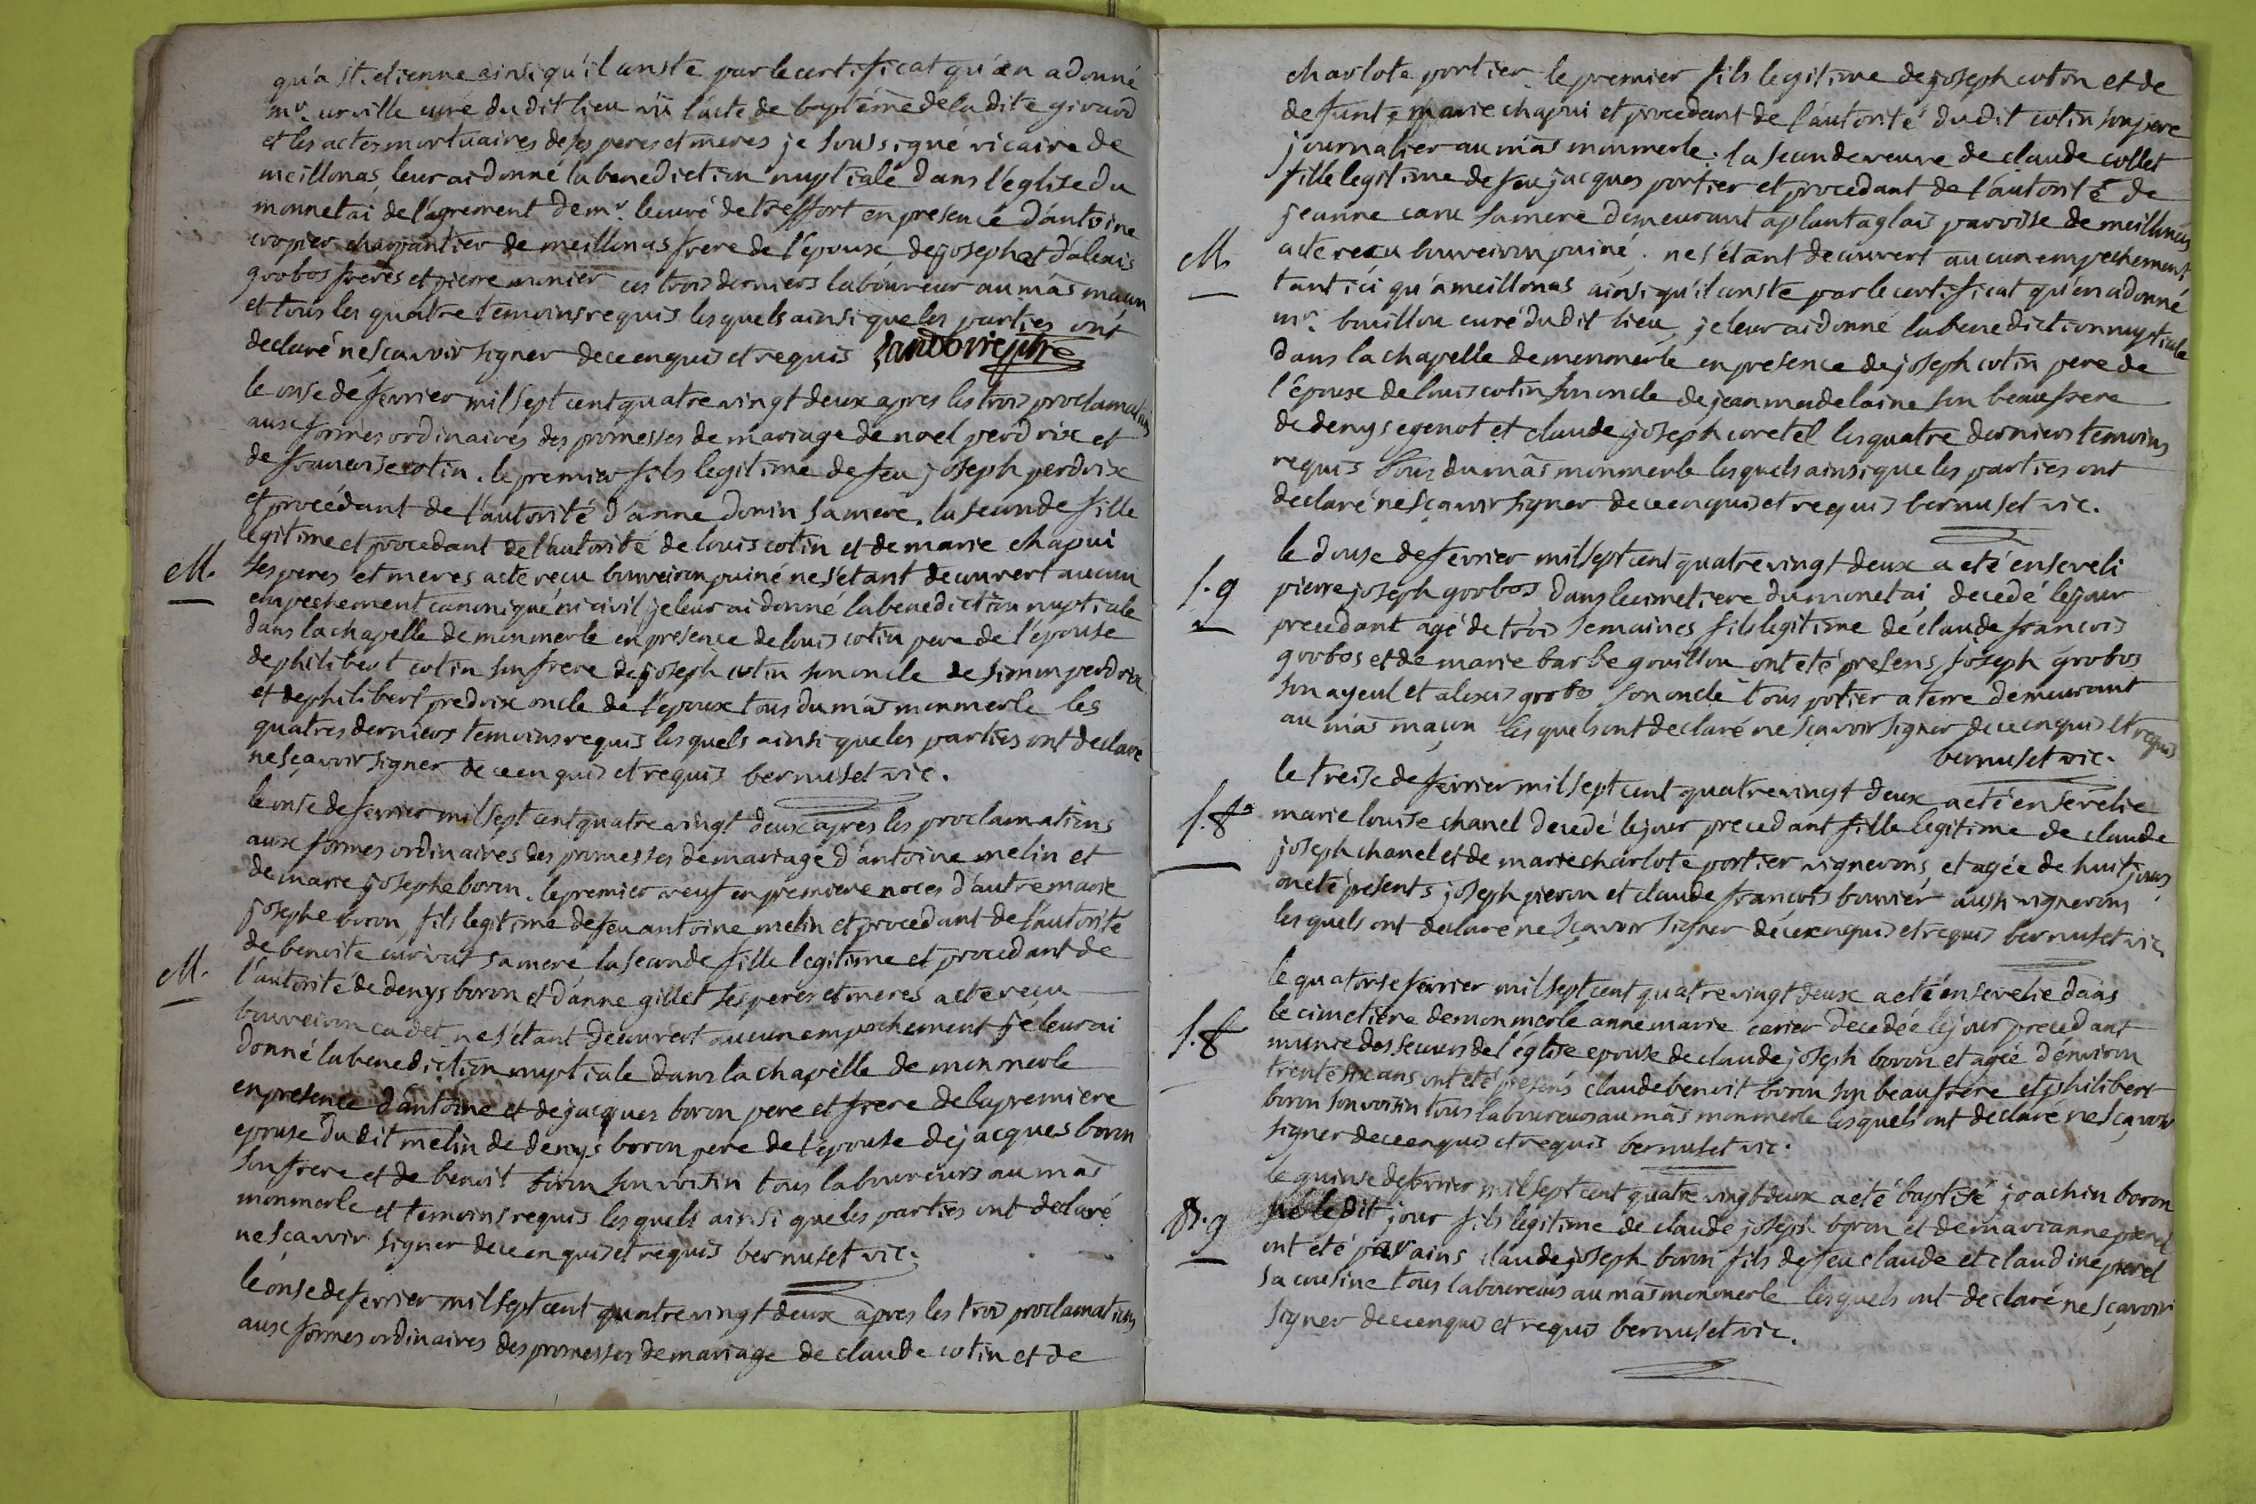 qu'a st. etienne ainsi qu'il conste par le certificat qu'en a donné
mr. curé du dit lieu vu l'acte de baptême de la dite girard
et les actes mortuaires de ses peres et meres je soussigné vicaire de
meillonas leur ai donné la benediction nuptiale dans l'eglise du
monnetai de l'agrement de mr. le curé de treffort en presence d'antoine
cropier charpantier de meillonas frere de l'époux de joseph et d'alexis
grobos freres et pierre monier ces trois derniers laboureur au mas maçon
et tous les quatre temoins requis lesquels ainsi que les parties ont
declaré ne sçavoir signer de ce enquis et requis
le onse de fevrier mil sept cent quatre vingt deux apres les trois proclamations
aux formes ordinaires des promesses de mariage de noel perdrix et
de francoise cotin. le premier fils legitime de feu joseph perdrix
et procédant de l'autorité d'anne donin sa mere. la seconde fille
legitime et procedant de l'autorité de louis cotin et de marie chapui
M. ses peres et meres acte reçu bouveiron puiné ne s'etant decouvert aucun
empeschement canonique ni civil je leur ai donné la benediction nuptiale
dans la chapelle de monmerle en presence de louis cotin pere de l'épouse
de philibert cotin son frere de joseph cotin son oncle de simon perdrix
et de philibert predrix oncle de l'époux tous du mas monmerle les
quatres derniers temoins requis lesquels ainsi que les parties ont declaré
ne sçavoir signer de ce enquis et requis bernuset vic.
le onse de fevrier mil sept cent quatre vingt deux apres les proclamations
aux formes ordinaires des promesses de mariage d'antoine melin et
de marie josephe boron. le premier veuf en premiere noces d'autre marie
josephe boron, fils legitime de feu antoine melin et procedant de l'autorité
de benoite sa mere la seconde fille legitime et procedant de
M. l'autorité de denys boron et d'anne gillet ses peres et meres acte recu
bouveiron cadet ne s'étant decouvert aucun empechement je leur ai
donné la benediction nuptiale dans la chapelle de monmerle
en presence d'antoine et de jacques boron pere et frere de la premiere
epouse du dit melin de denys boron pere de l'épouse de jacques boron
son frere et de benoit boron son voisin tous laboureurs au mas
monmerle et temoins requis lesquels ainsi que les parties ont declaré
ne scavoir signer de ce enquis et requis bernuset vic.
le onse de fevrier mil sept cent quatre vingt deux apres les trois proclamations
aux formes ordinaires des promesses de mariage de claude cotin et de
charlote portier. le premier fils legitime de joseph cotin et de
defunte marie chapui et procedant de l'autorité du dit cotin son pere
journalier au mas monmerle. la seconde veuve de claude collet
fille legitime de feu jacques portier et procedant de l'autorité de
jeanne sa mere demeurant a plantaglais paroisse de meillonas
M. acte recu bouveiron puiné. ne s'étant decouvert aucun empechement
tant ici qu'a meillonas ainsi qu'il conste par le certificat qu'en a donné
mr. bouillou curé du dit lieu, je leur ai donné la benediction nuptiale
dans la chapelle de monmerle en presence de joseph cotin pere de
l'époux de louis cotin son oncle de jean madelaine son beau frere
de denys egenot et claude joseph coretel les quatre derniers temoins
requis tous du mas monmerle lesquels ainsi que les parties ont
declaré ne sçavoir signer de ce enquis et requis bernuset vic.
le douse de fevrier mil sept cent quatre vingt deux a eté enseveli
S. g pierre joseph grobos dans le cimetiere du monetai decedé le jour
precedant agé de trois semaines fils legitime de claude francois
grobos et de marie barbe gouillou ont eté presens joseph grobos
son ayeul et alexis grobos son oncle tous potier a terre demeurant
au mas maçon lesquels ont declaré ne sçavoir signer de ce enquis et requis
bernuset vic.
le treise de fevrier mil sept cent quatre vingt deux a eté ensevelie
S. f marie louise chanel decedé le jour precedant fille legitime de claude
joseph chanel et de marie charlote portier vignerons et agée de huit jours
ont eté presents joseph pieron et claude françois bouvier aussi vignerons
lesquels ont declaré ne sçavoir signer de ce enquis et requis bernuset vic.
le quatorse fevrier mil sept cent quatre vingt deux a eté ensevelie dans
le cimetiere de monmerle anne marie decedée le jour precedant
S. f munie des secours de l'église epouse de claude joseph boron et agée d'environ
trente six ans ont eté presens claude benoit boron son beau frere et philibert
boron son voisin tous laboureurs au mas monmerle lesquels ont declaré ne sçavoir
signer de ce enquis et requis bernuset vic.
le quinse de fevrier mil sept cent quatre vingt deux a eté baptisé joachin boron
B. g né le dit jour fils legitime de claude joseph boron et de marianne pierrel
ont été parains claude joseph boron fils de feu claude et claudine pierrel
sa cousine tous laboureurs au mas monmerle lesquels ont declaré ne sçavoir
signer de ce enquis et requis bernuset vic.